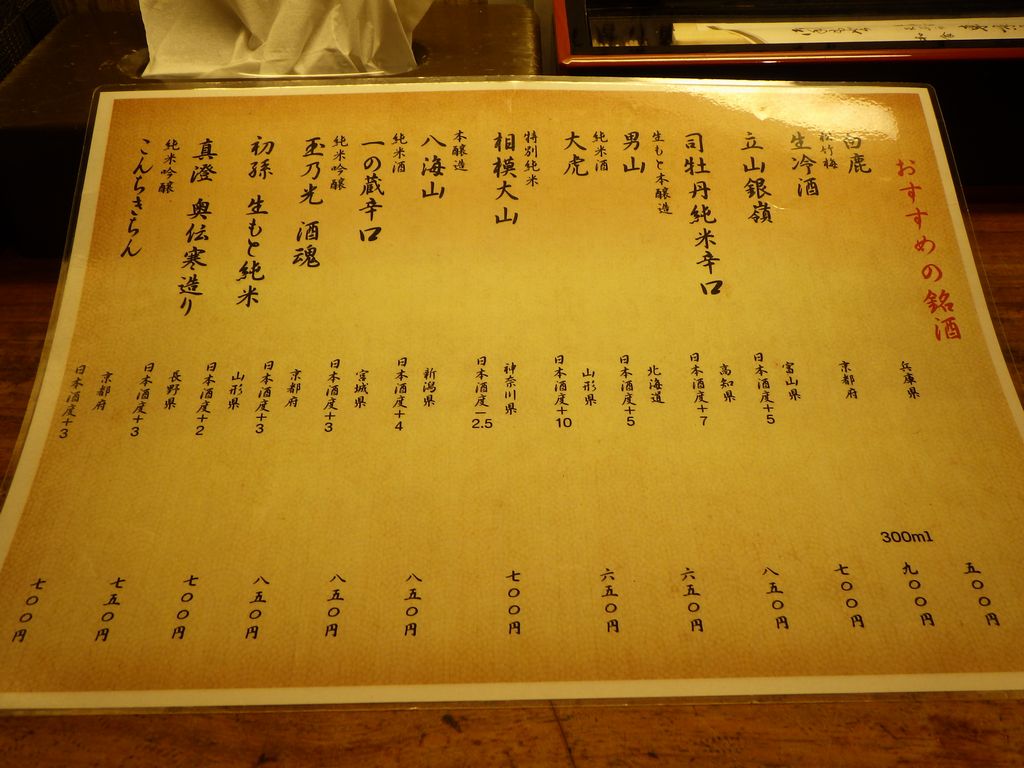 おすすめの銘酒
白鹿 兵庫県 五〇〇円
松竹梅
生冷酒 京都府 300ml 九〇〇円
立山銀嶺 富山県 日本酒度+5 七〇〇円
司牡丹純米辛口 高知県 日本酒度+7 八五〇円
生もと本醸造
男山 北海道 日本酒度+5 六五〇円
純米酒
大虎 山形県 日本酒度+10 六五〇円
特別純米
相模大山 神奈川県 日本酒度−2.5 七〇〇円
本醸造
八海山 新潟県 日本酒度+4 八五〇円
純米酒
一の蔵辛口 宮城県 日本酒度+3 八五〇円
純米吟醸
玉乃光 酒魂 京都府 日本酒度+3 八五〇円
初孫 生もと純米 山形県 日本酒度+2 七〇〇円
真澄 奥伝寒造り 長野県 日本酒度+3 七五〇円
純米吟醸
こんちきちん 京都府 日本酒度+3 七〇〇円